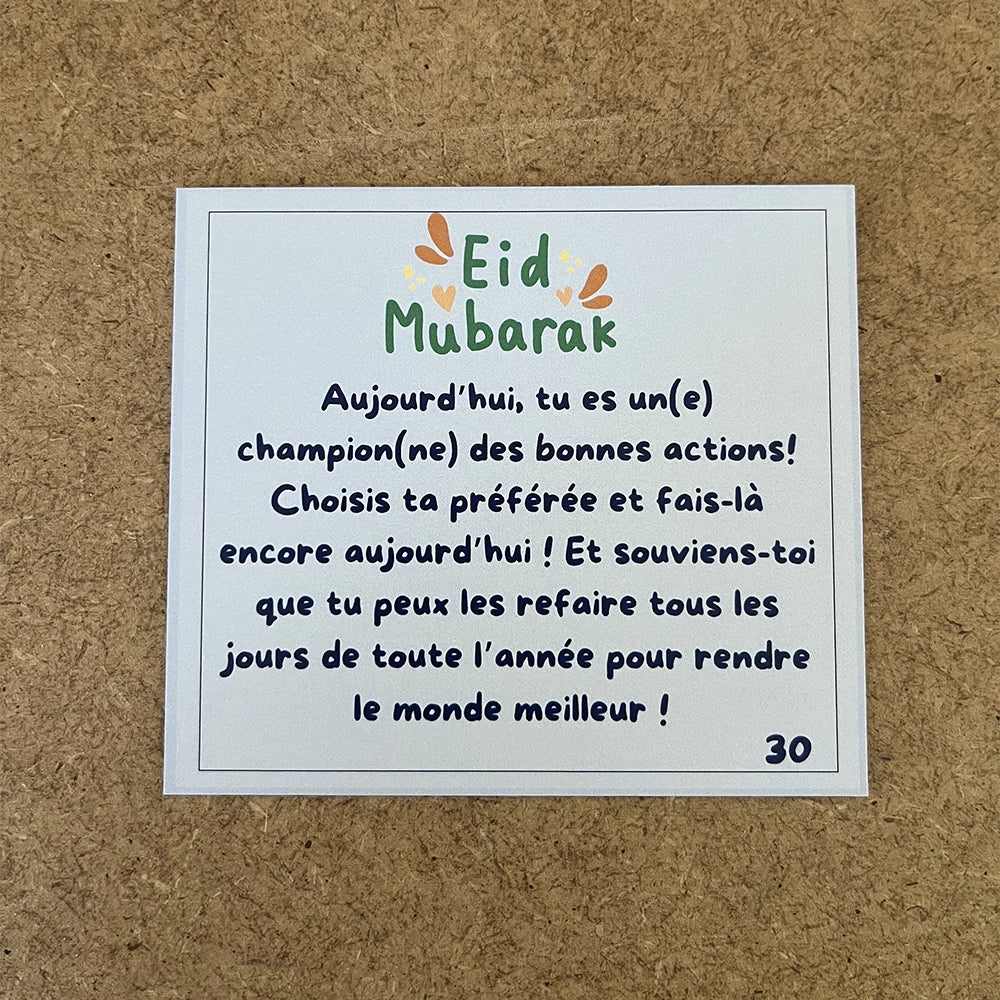 Eid
Mubarak
Aujourd'hui, tu es un(e)
champion(ne) des bonnes actions!
Choisis ta préférée et fais-là
encore aujourd'hui ! Et souviens-toi
que tu peux les refaire tous les
jours de toute l'année pour rendre
le monde meilleur !
30